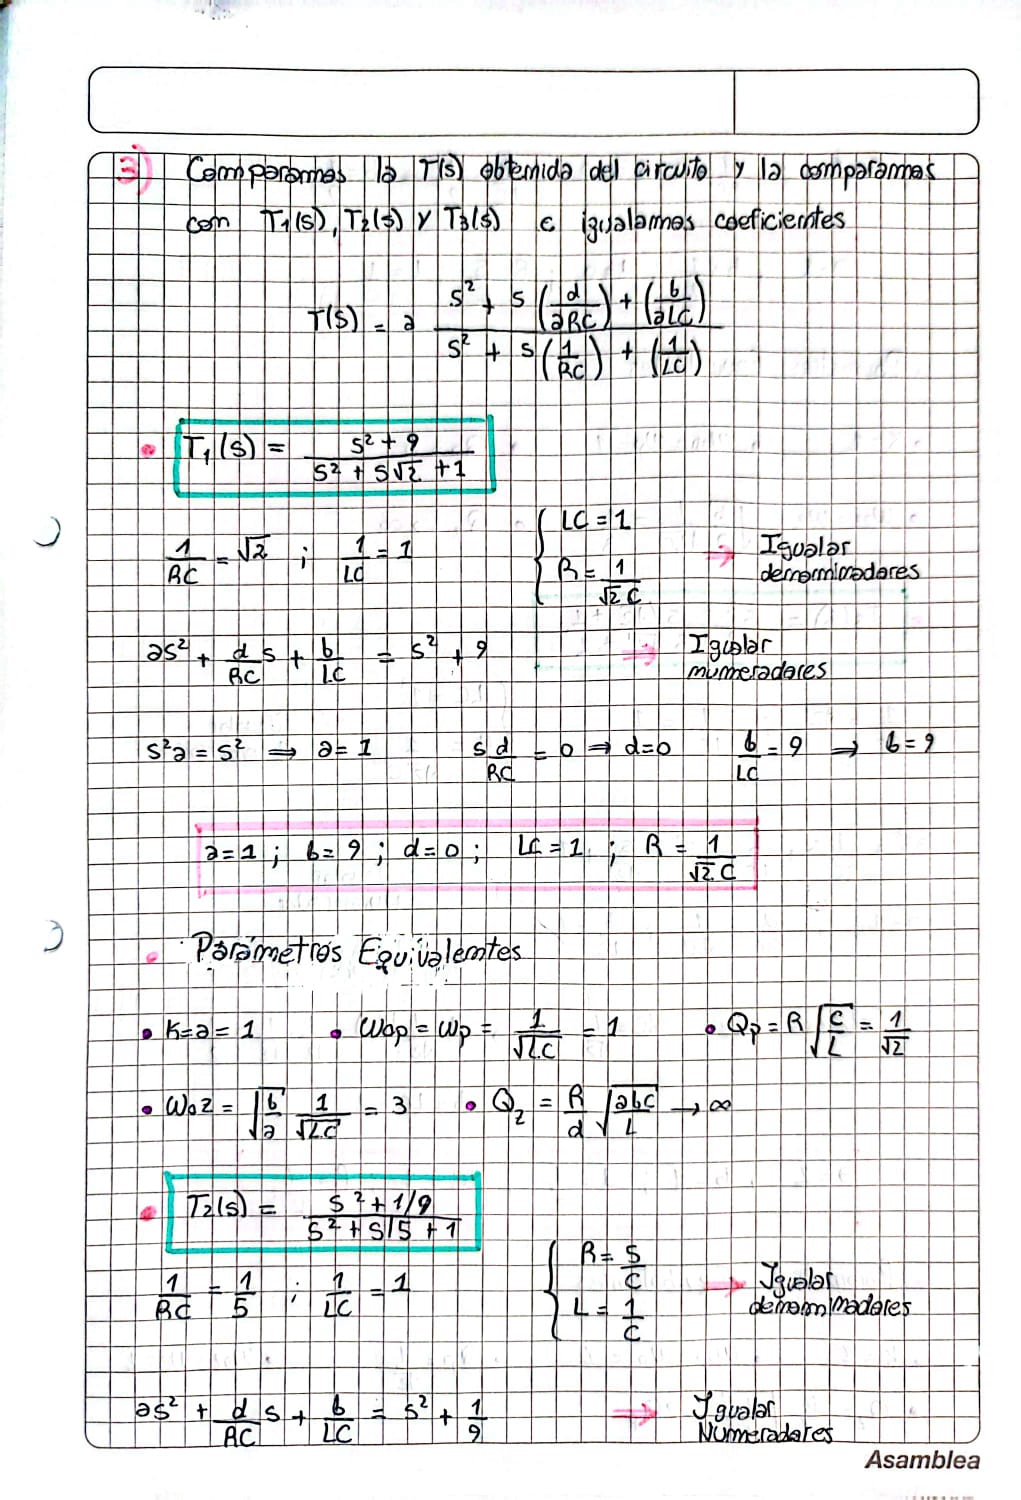 3) Comparamos la T(s) obtenida del circuito y la comparamos
con T₁(s), T₂(s) y T₃(s) e igualamos coeficientes
T(s) = a (s² + s (d/aRC) + (b/aLC)) / (s² + s (1/RC) + (1/LC))
• T₁(s) = (s² + 9) / (s² + s√2 + 1)
1/RC = √2 ; 1/LC = 1 { LC = 1 ; R = 1/(√2 C) ⇒ Igualar denominadores
as² + d/RC s + b/LC = s² + 9 ⇒ Igualar numeradores
s²a = s² ⇒ a = 1 s d/RC = 0 ⇒ d=0 b/LC = 9 ⇒ b = 9
a = 1 ; b = 9 ; d = 0 ; LC = 1 ; R = 1/(√2 C)
• Parámetros Equivalentes
• K=a = 1 • Wop = Wp = 1/√LC = 1 • Qp = R √(C/L) = 1/√2
• Woz = √(b/a) 1/√LC = 3 • Qz = R/d √(abC/L) → ∞
• T₂(s) = (s² + 1/9) / (s² + s/5 + 1)
1/RC = 1/5 ; 1/LC = 1 { R = 5/C ; L = 1/C ⇒ Igualar denominadores
as² + d/RC s + b/LC = s² + 1/9 ⇒ Igualar Numeradores
Asamblea